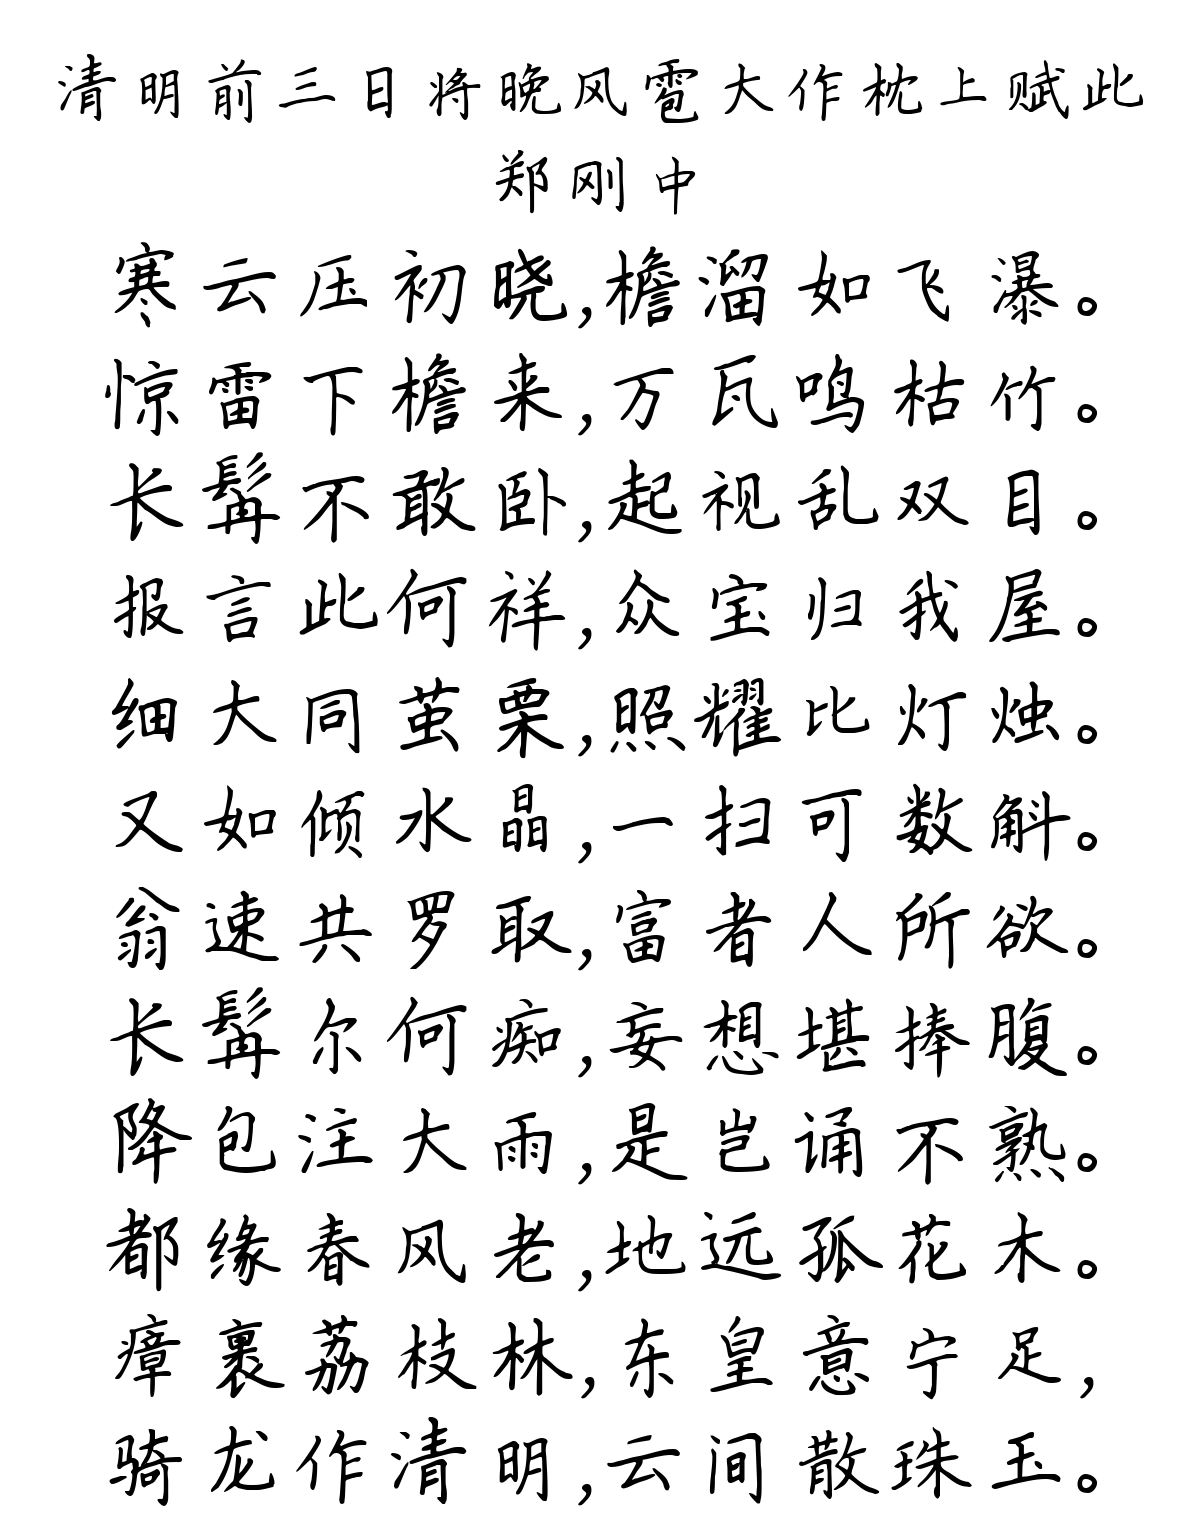 清明前三日将晚风雹大作枕上赋此
郑刚中
寒云压初晓,檐溜如飞瀑。
惊雷下檐来,万瓦鸣枯竹。
长髯不敢卧,起视乱双目。
报言此何祥,众宝归我屋。
细大同茧栗,照耀比灯烛。
又如倾水晶,一扫可数斛。
翁速共罗取,富者人所欲。
长髯尔何痴,妄想堪捧腹。
降包注大雨,是岂诵不熟。
都缘春风老,地远孤花木。
瘴裹荔枝林,东皇意宁足,
骑龙作清明,云间散珠玉。